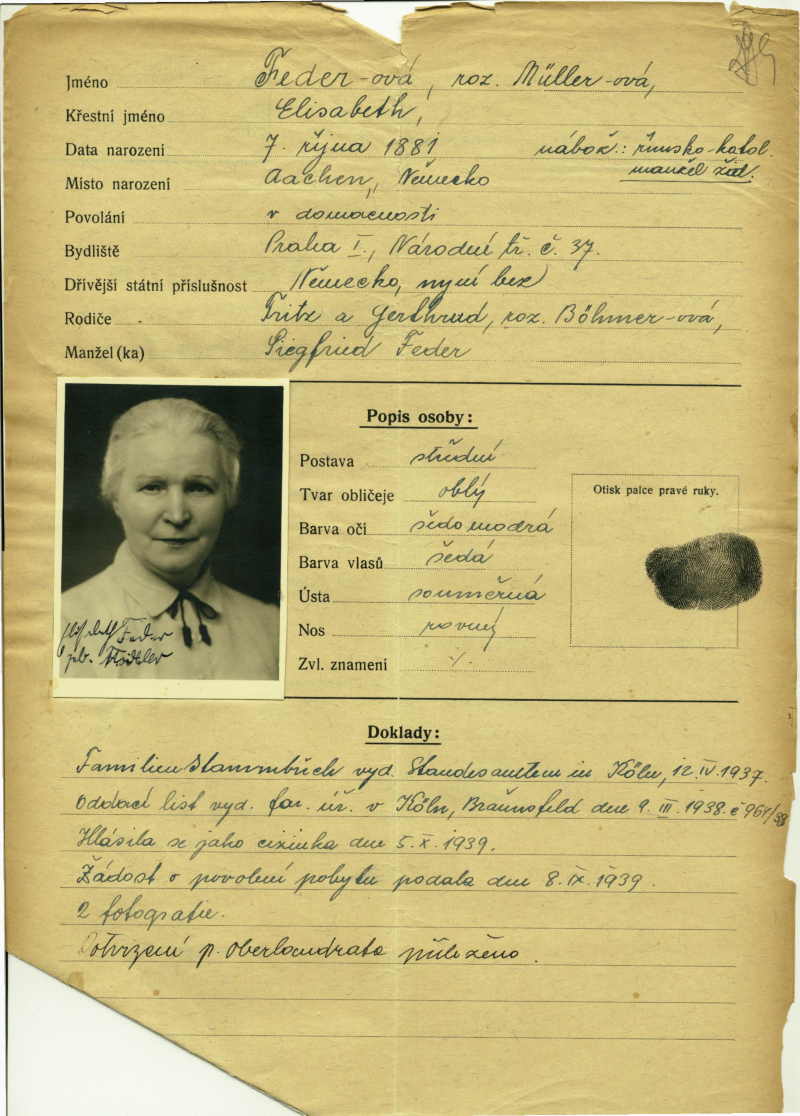 Jméno Feder-ová, roz. Müller-ová,
Křestní jméno Elisabeth,
Data narození 7. října 1881 nábož.: římsko-katol.
manžel žid.
Místo narození Aachen, Německo
Povolání v domacnosti
Bydliště Praha I., Národní tř. č. 37.
Dřívější státní příslušnost Německo, nyní bez
Rodiče Fritz a Gerthrud, roz. Böhmer-ová,
Manžel(ka) Siegfried Feder
Popis osoby:
Postava střední
Tvar obličeje oblý
Barva očí šedomodrá
Barva vlasů šedá
Ústa souměrná
Nos rovný
Zvl. znamení
Otisk palce pravé ruky.
Elisabeth Feder
geb.
Doklady:
Familienstammbuch vyd. Standesamtem in Köln, 12.IV.1937.
Oddací list vyd. far. úř. v Köln, Braunsfeld dne 9. III. 1938. č 961/38
Hlásila se jako cizinka dne 5. X. 1939.
Žádost o povolení pobytu podala dne 8. IX. 1939.
2 fotografie.
Potvrzení p. Oberlandrata přiloženo.